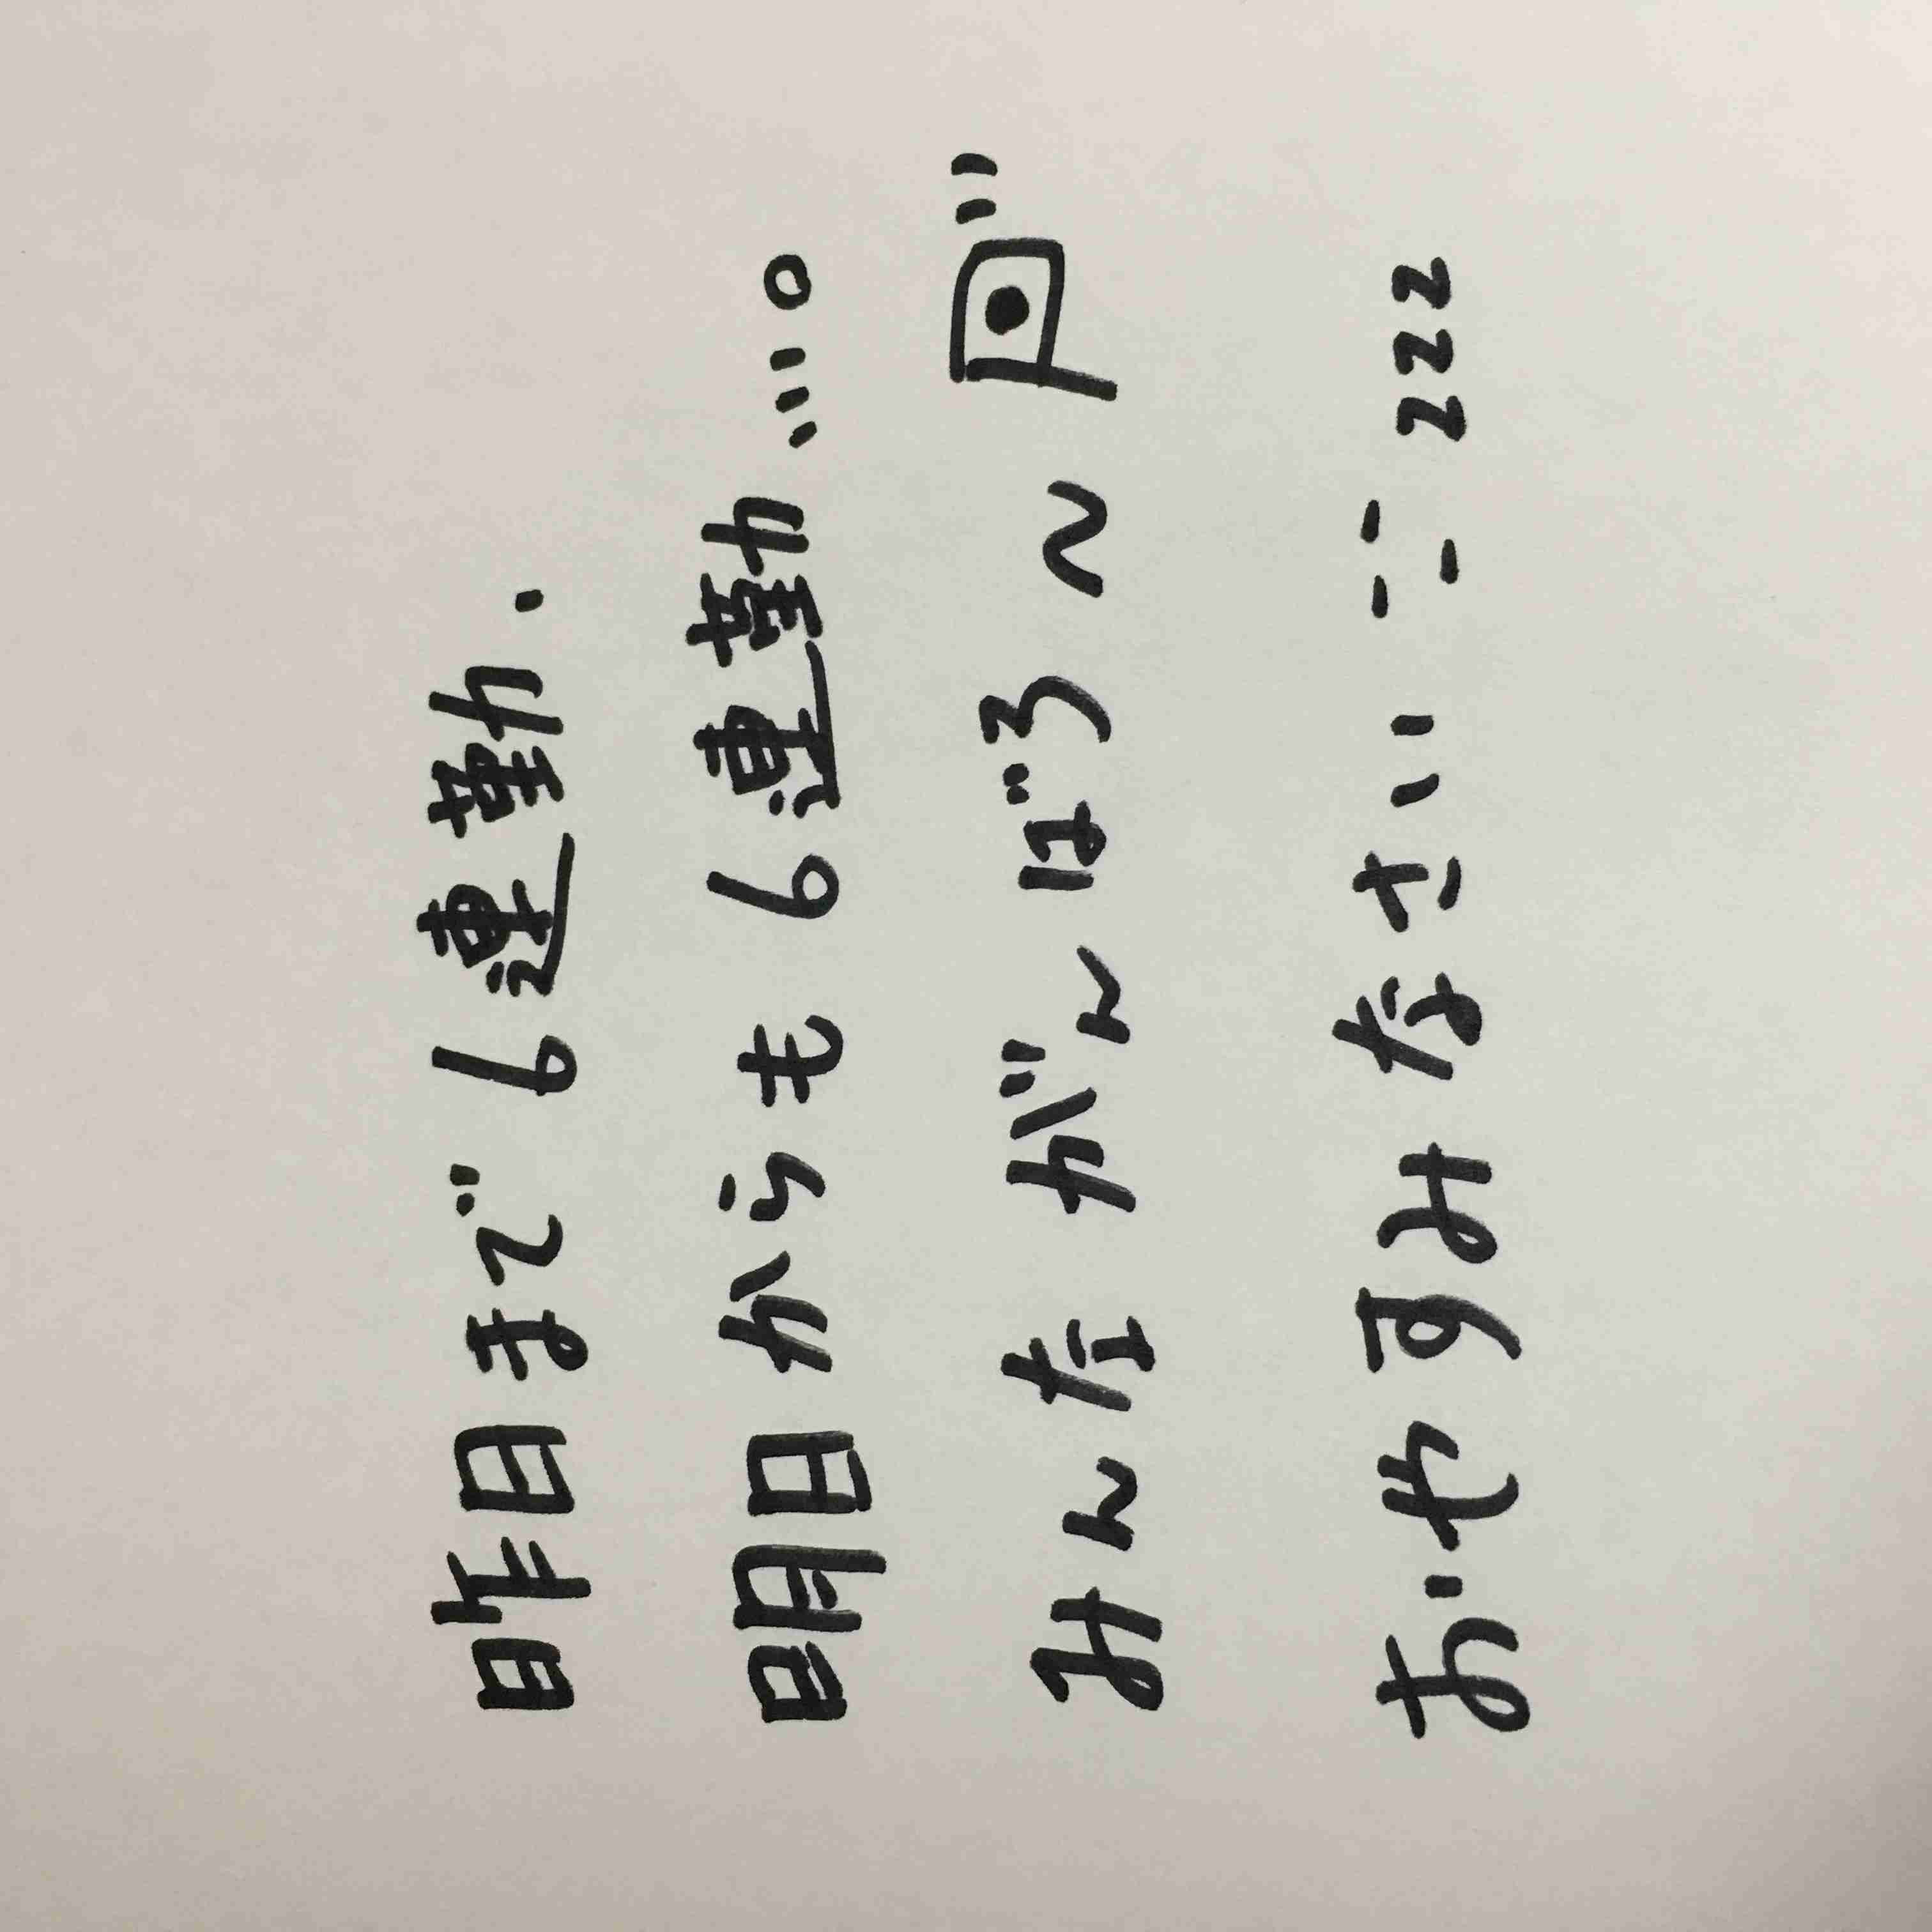 昨日まで6連勤.
明日からも6連勤...。
みんながんばろ〜
おやすみなさい zzz